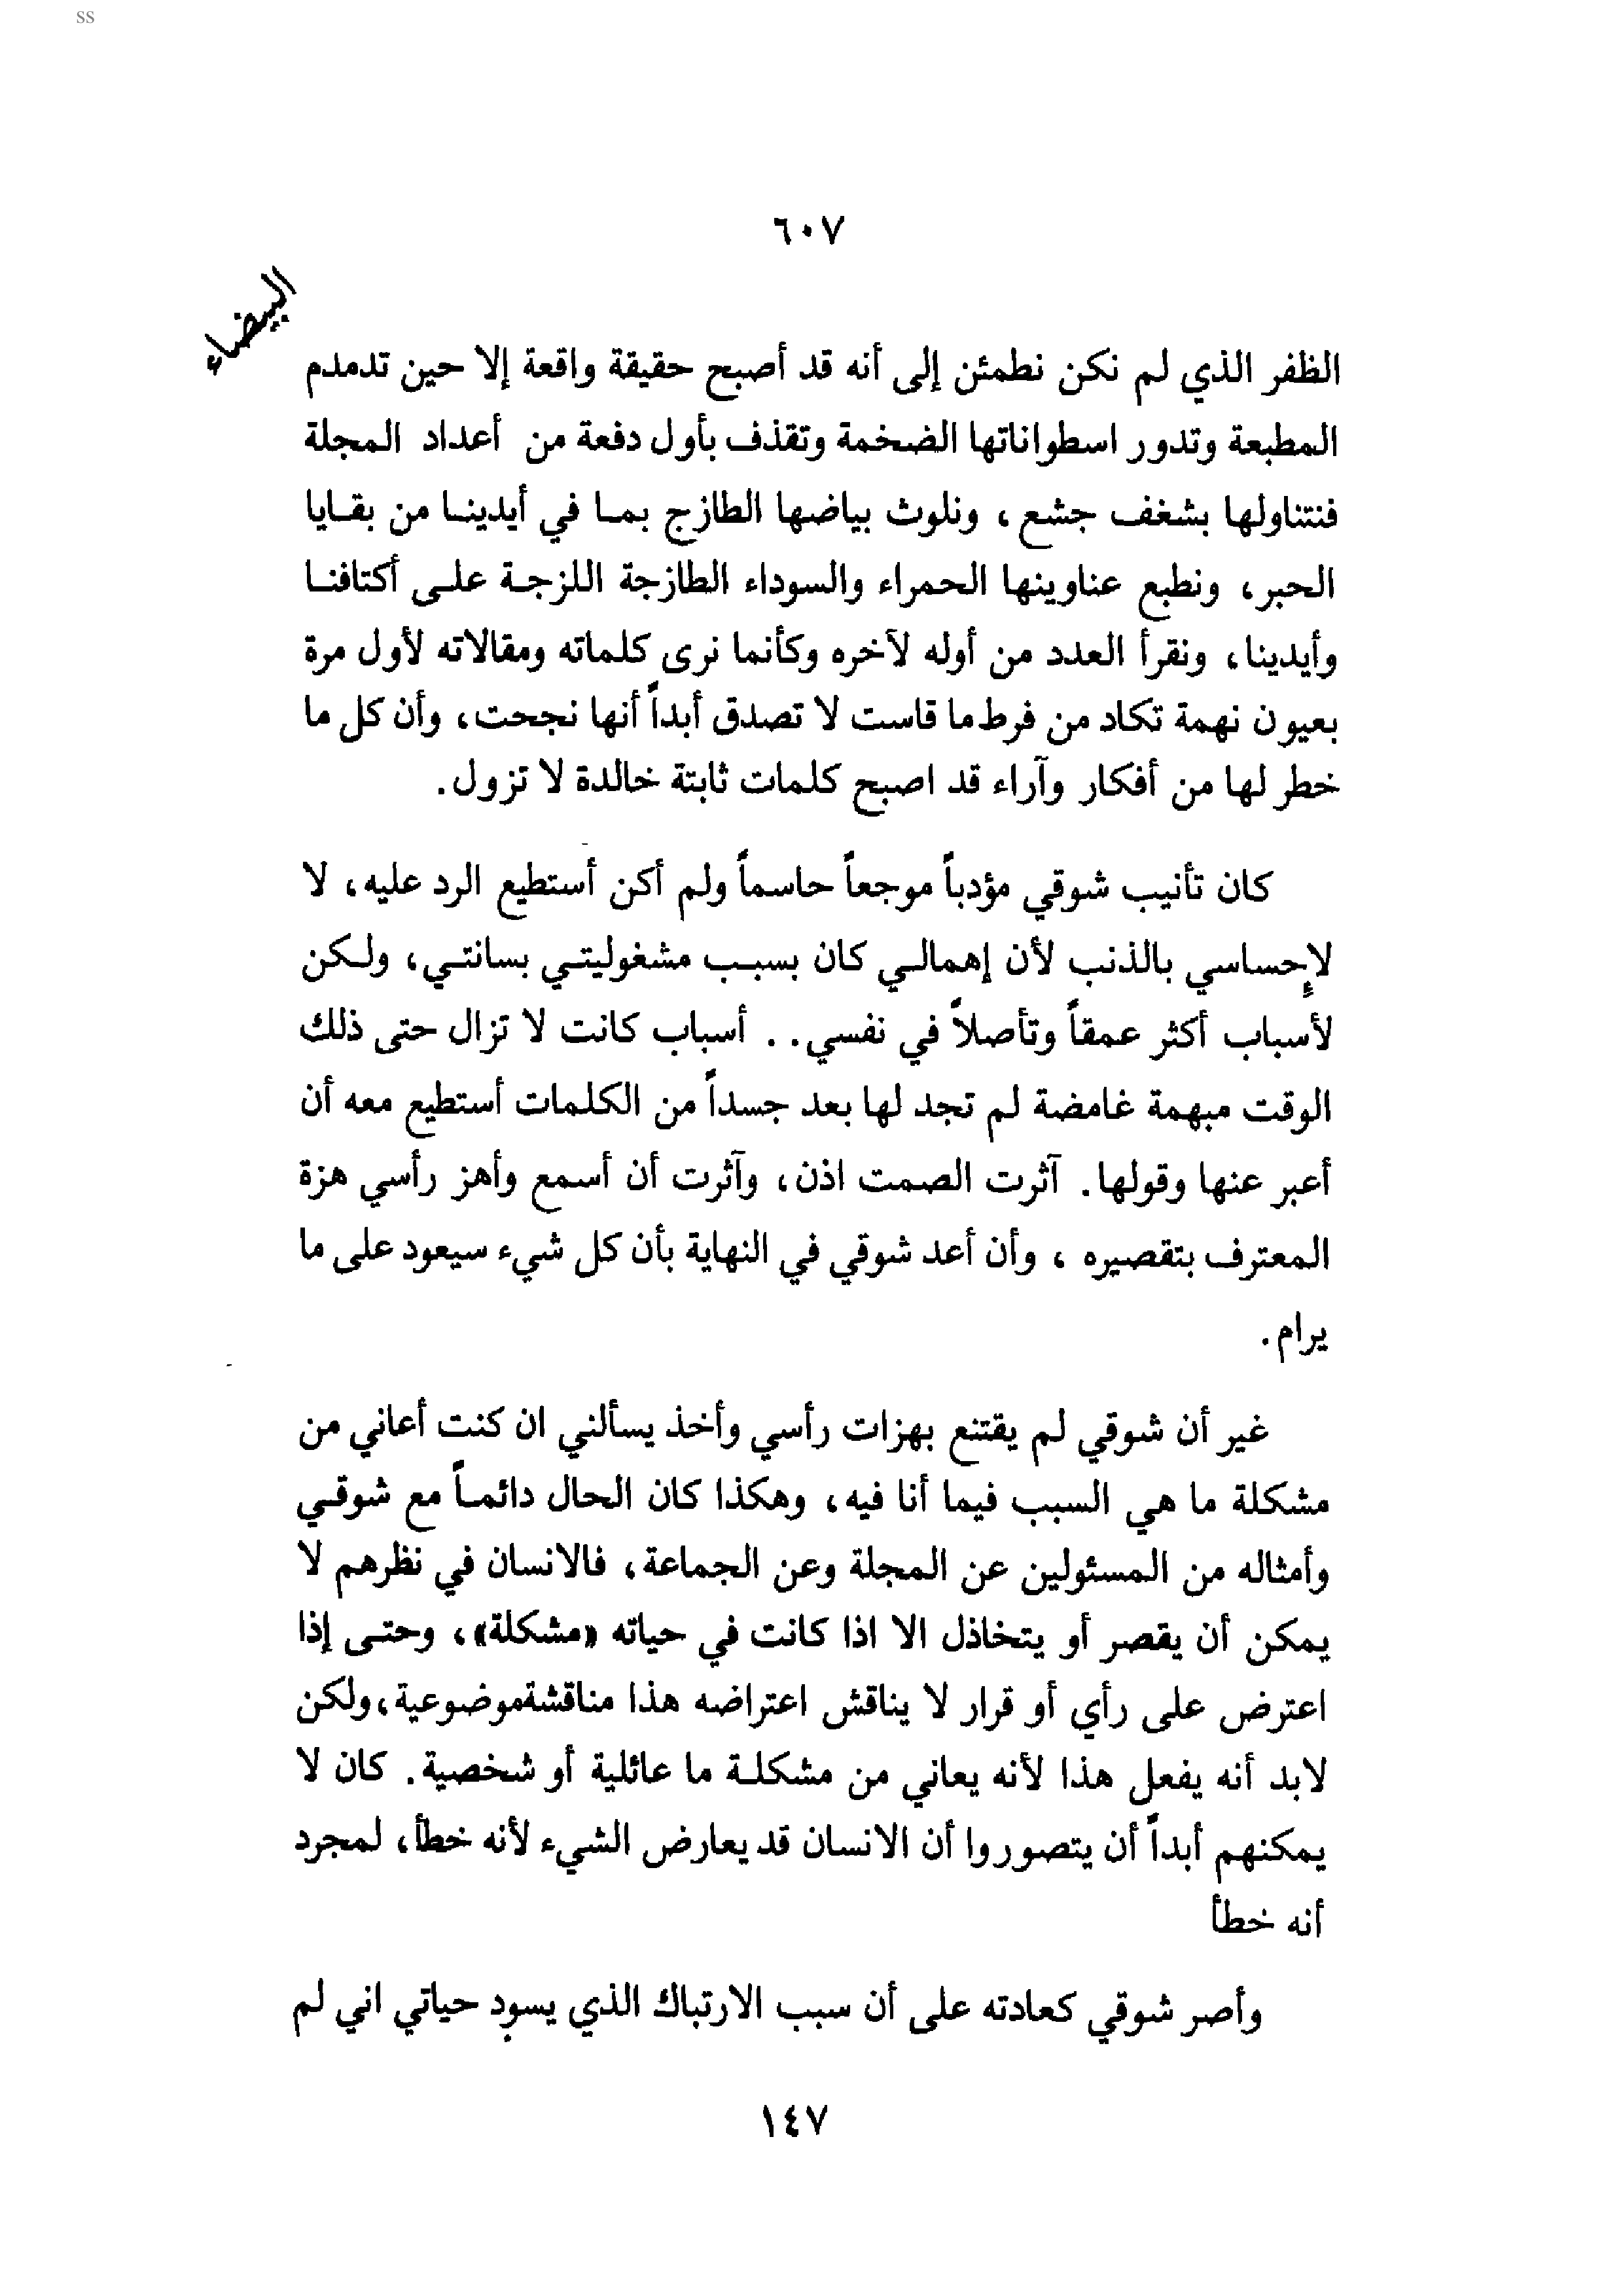 ss
٦٠٧
البيضاء
الظفر الذي لم نكن نطمئن إلى أنه قد أصبح حقيقة واقعة إلا حين تدمدم
المطبعة وتدور اسطواناتها الضخمة وتقذف بأول دفعة من أعداد المجلة
فنتناولها بشغف جشع، ونلوث بياضها الطازج بمـا في أيدينـا من بقـايا
الحبر، ونطبع عناوينها الحمراء والسوداء الطازجة اللزجـة علـى أكتافنـا
وأيدينا، ونقرأ العدد من أوله لآخره وكأنما نرى كلماته ومقالاته لأول مرة
بعيون نهمة تكاد من فرط ما قاست لا تصدق أبداً أنها نجحت، وأن كل ما
خطر لها من أفكار وآراء قد اصبح كلمات ثابتة خالدة لا تزول.
كان تأنيب شوقي مؤدباً موجعاً حاسماً ولم أكن أستطيع الرد عليه، لا
لإحساسي بالذنب لأن إهمالـي كان بسبـب مشغوليتـي بسانتـي، ولـكن
لأسباب أكثر عمقاً وتأصلاً في نفسي.. أسباب كانت لا تزال حتى ذلك
الوقت مبهمة غامضة لم تجد لها بعد جسداً من الكلمات أستطيع معه أن
أعبر عنها وقولها. آثرت الصمت اذن، وآثرت أن أسمع وأهز رأسي هزة
المعترف بتقصيره ، وأن أعد شوقي في النهاية بأن كل شيء سيعود على ما
يرام.
غير أن شوقي لم يقتنع بهزات رأسي وأخذ يسألني ان كنت أعاني من
مشكلة ما هي السبب فيما أنا فيه، وهكذا كان الحال دائمـاً مع شوقـي
وأمثاله من المسئولين عن المجلة وعن الجماعة، فالانسان في نظرهم لا
يمكن أن يقصر أو يتخاذل الا اذا كانت في حياته «مشكلة»، وحتـى إذا
اعترض على رأي أو قرار لا يناقش اعتراضه هذا مناقشة موضوعية، ولكن
لابد أنه يفعل هذا لأنه يعاني من مشكلـة ما عائلية أو شخصية. كان لا
يمكنهم أبداً أن يتصوروا أن الانسان قد يعارض الشيء لأنه خطأ، لمجرد
أنه خطأ
وأصر شوقي كعادته على أن سبب الارتباك الذي يسود حياتي اني لم
١٤٧